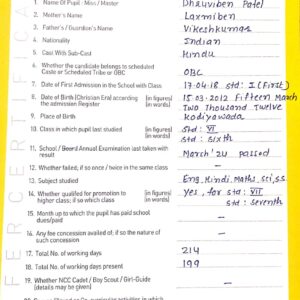 1. Name Of Pupil - Miss / Master Dhruviben Patel
2. Mother's Name Laxmiben
3. Father's / Guardian's Name Vikeshkumar
4. Nationality Indian
5. Cast With Sub-Cast Hindu
6. Whether the candidate belongs to scheduled
Caste or Scheduled Tribe or OBC OBC
7. Date of First Admission in the School with Class 17.04.18 std: I (First)
8. Date of Birth (Christian Era) according [in figures] 15.03.2012 Fifteen March
the admission Register [in words] Two Thousand Twelve
9. Place of Birth Kadiyawada
10. Class in which pupil last studied [in figures] std: VI
[in words] std: sixth
11. School / Board Annual Examination last taken with
result March '24 passed
12. Whether failed, if so once / twice in the same class –
13. Subject studied Eng, Hindi, Maths, Sci, SS.
14. Whether qualified for promotion to [in figures] Yes, for std: VII
higher class; if so which class [in words] std: seventh
15. Month up to which the pupil has paid school
dues/paid –
16. Any fee concession availed of; if so the nature of
such concession –
17. Total No. of working days 214
18. Total No. of working days present 199
19. Whether NCC Cadet / Boy Scout / Girl-Guide
(details may be given) –
FER CERTIFICA